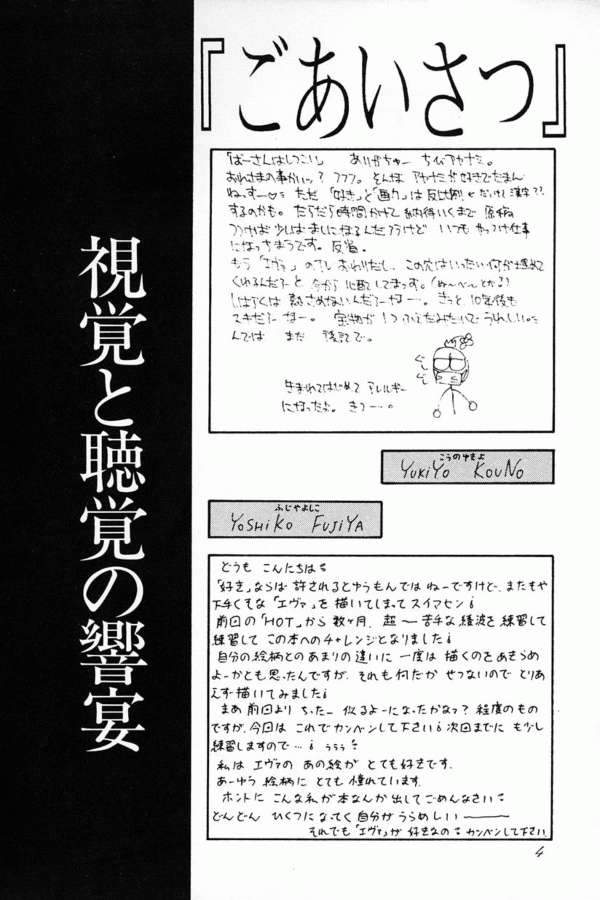 『ごあいさつ』
視覚と聴覚の響宴
「ばーさんはしつこい」 ありがちゅー ちびアヤナミ。
おれさまの事かいッ？フフフ。そんな アヤナミが好きでたまん
ねっすー♡ ただ「好き」と「画力」は反比例
するのかも。だらだら時間かけて納得いくまで 原稿
つづければ少しはましになるんだろうけど いつも やっつけ仕事
になっちまうです。反省。
もう「エヴァ」の おわりだし、この穴はいったい何が埋めて
くれるんだろーと 今から 心配してまっす。
しばらくは 熱さめないんだろーなー…。きっと 10年後も
スキだろーなー。宝物が 1つふえたみたいで うれしい。
んでは また 後記で。
生まれてはじめて アレルギー
になったよ。きつー…。
こうのゆきよ
YUKIYO KOUNO
ふじやよしこ
YOSHIKO FUJIYA
どうも こんにちは
「好き」ならば 許されるとゆうもんでは ねーですけど、またもや
下手くそな「エヴァ」を 描いてしまって スイマセン!
前回の「HOT」から 数ヶ月、超〜苦手な 綾波を 練習して
練習して この本への チャレンジとなりました!
自分の絵柄との あまりの 違いに 一度は 描くのを あきらめ
よーかとも 思ったんですが、それも 何だか せつないので とりあ
えず 描いてみました!
まあ 前回より ちったー 似るよーに なったかなっ? 程度のもの
ですが、今回は これで カンベンして下さい! 次回までに もう少し
練習しますので…! ううう
私は エヴァの あの絵が とても好きです。
あーゆう 絵柄に とても 憧れています。
ホントに こんな私が 本なんか 出して ごめんなさい
どんどん ひくつになってく 自分が うらめしい———
それでも「エヴァ」が 好きなの カンベンして下さい
4